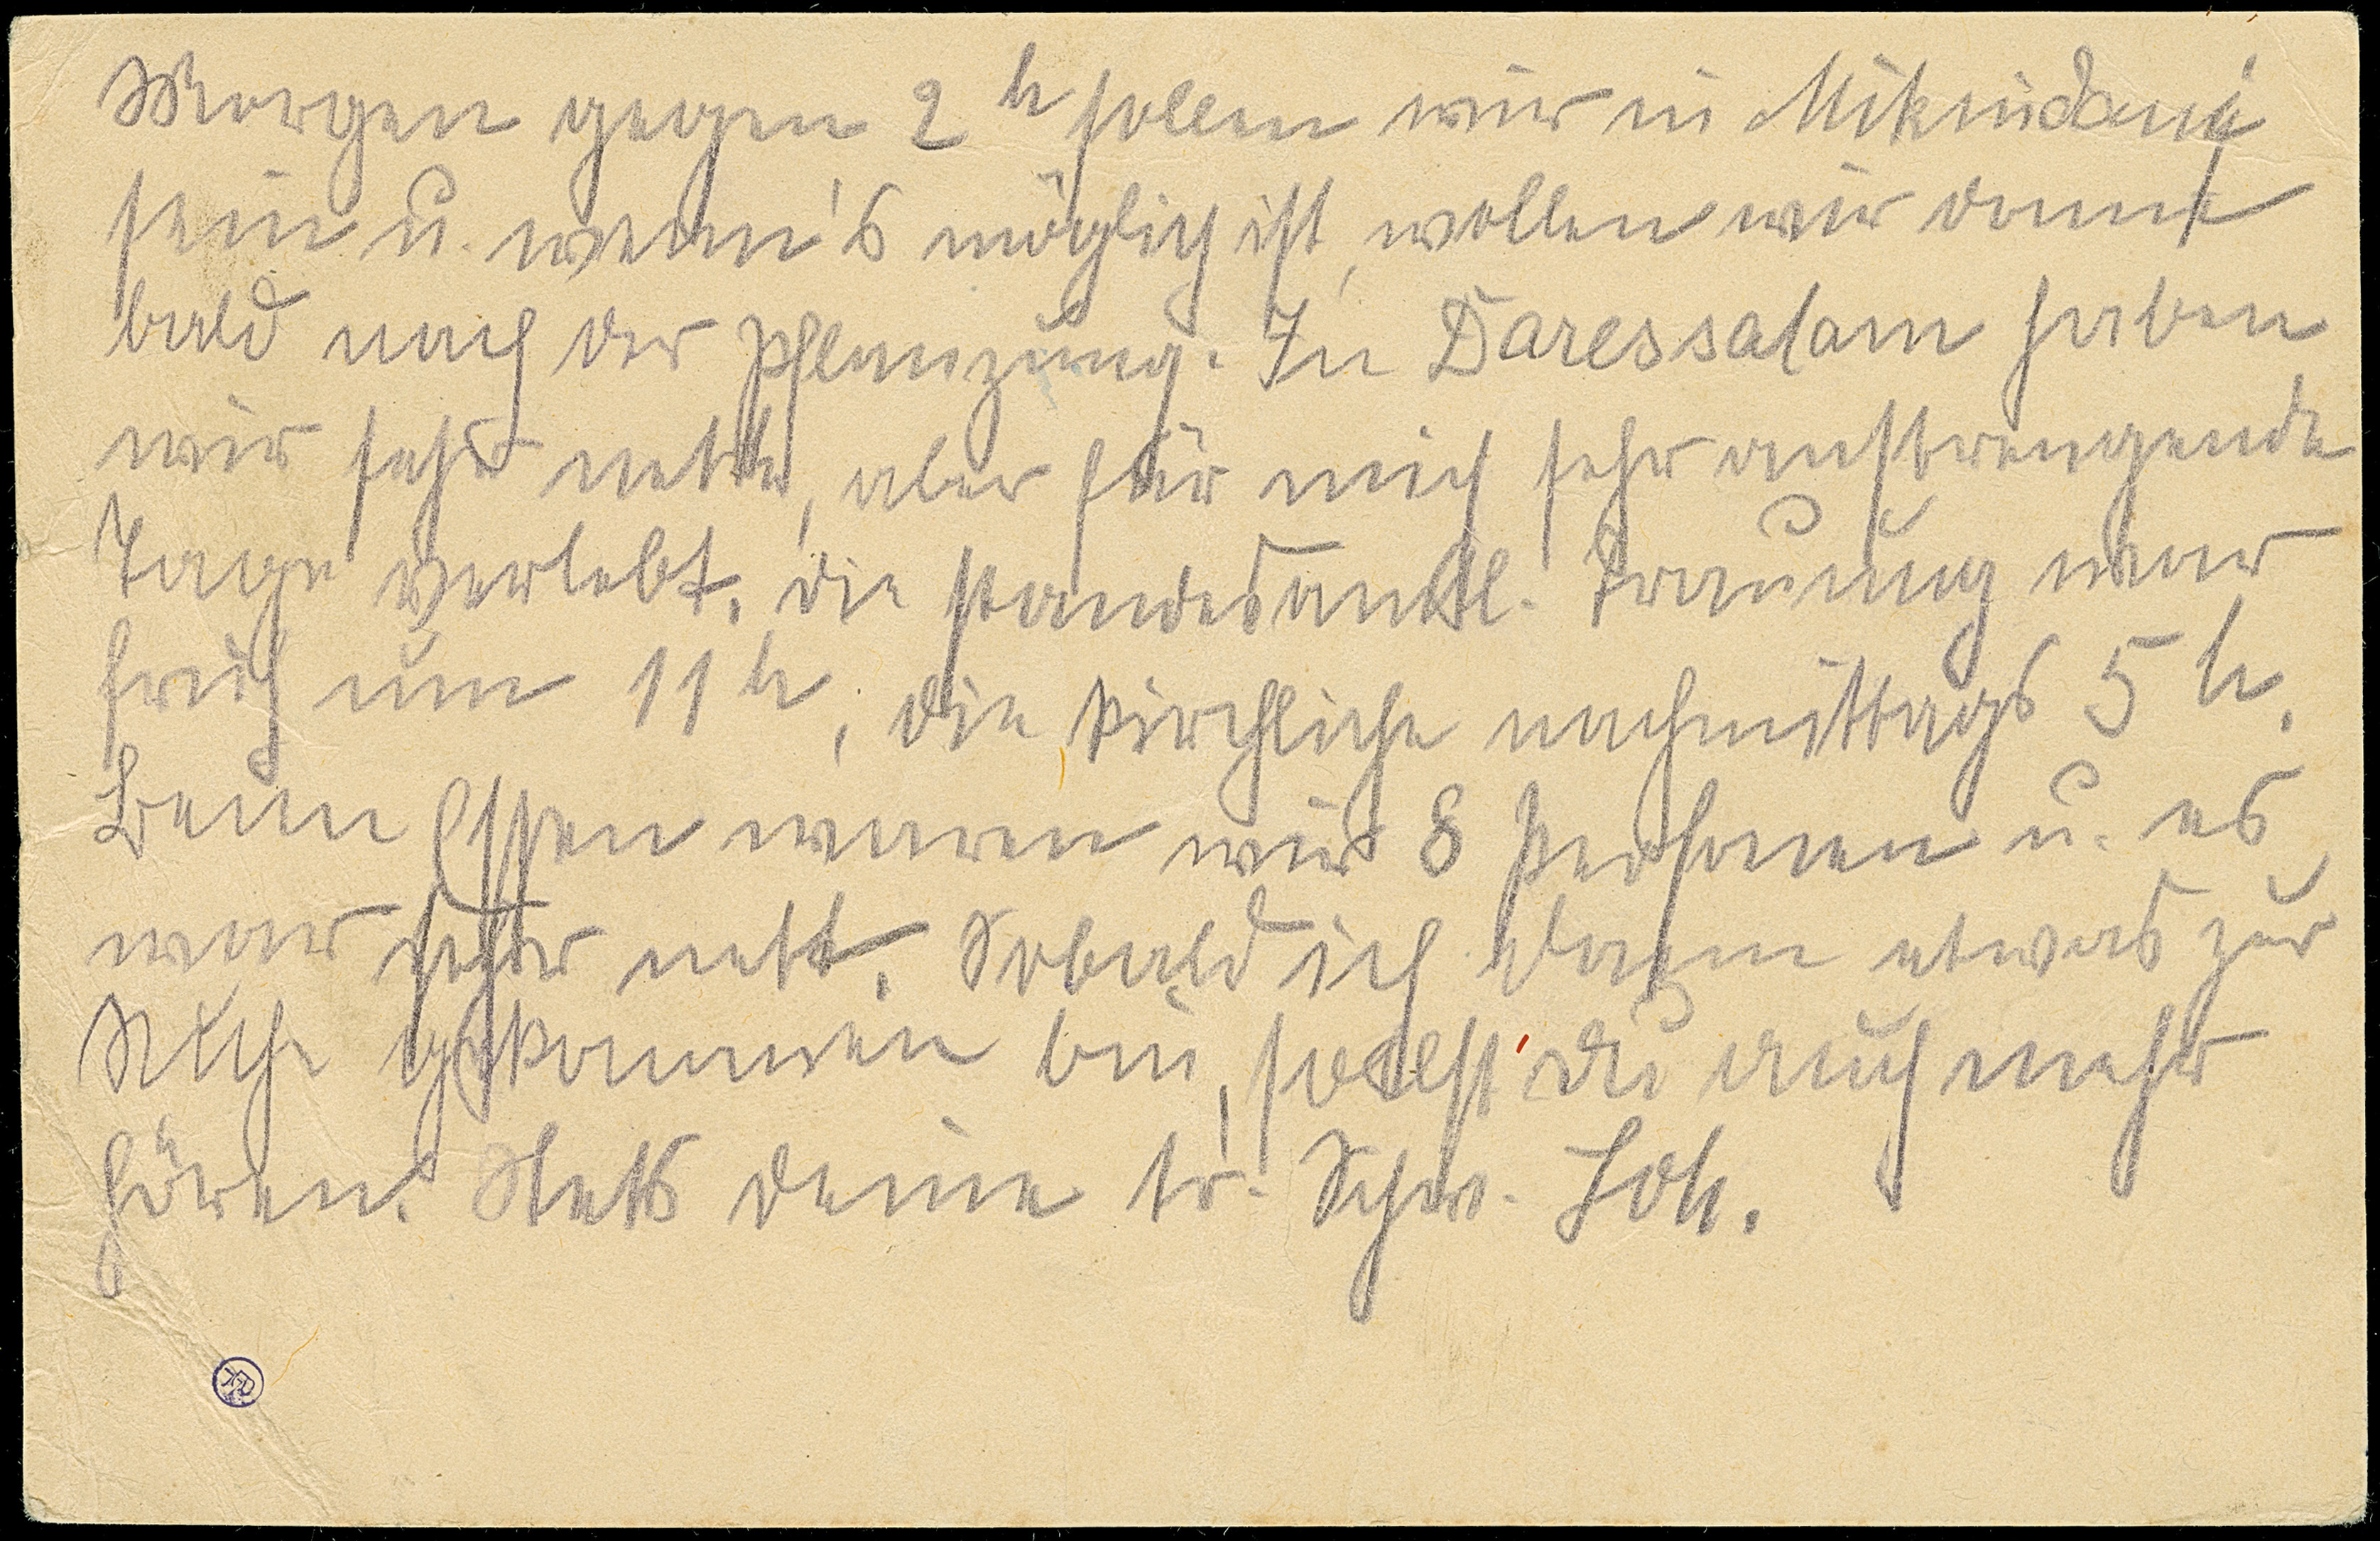 Morgen gegen 2 h sollen wir in Mikindani
sein u. wenn's möglich ist, wollen wir dann
bald nach der Pflanzung. In Daressalam haben
wir sehr nette, aber für mich sehr anstrengende
Tage verlebt. Die standesamtl. Trauung war
früh um 11 h, die kirchliche nachmittags 5 h.
Beim Essen waren wir 8 Personen u. es
war sehr nett. Sobald ich dann etwas zur
Ruhe gekommen bin, sollst du auch mehr
hören. Stets deine tr. Schw. Joh.